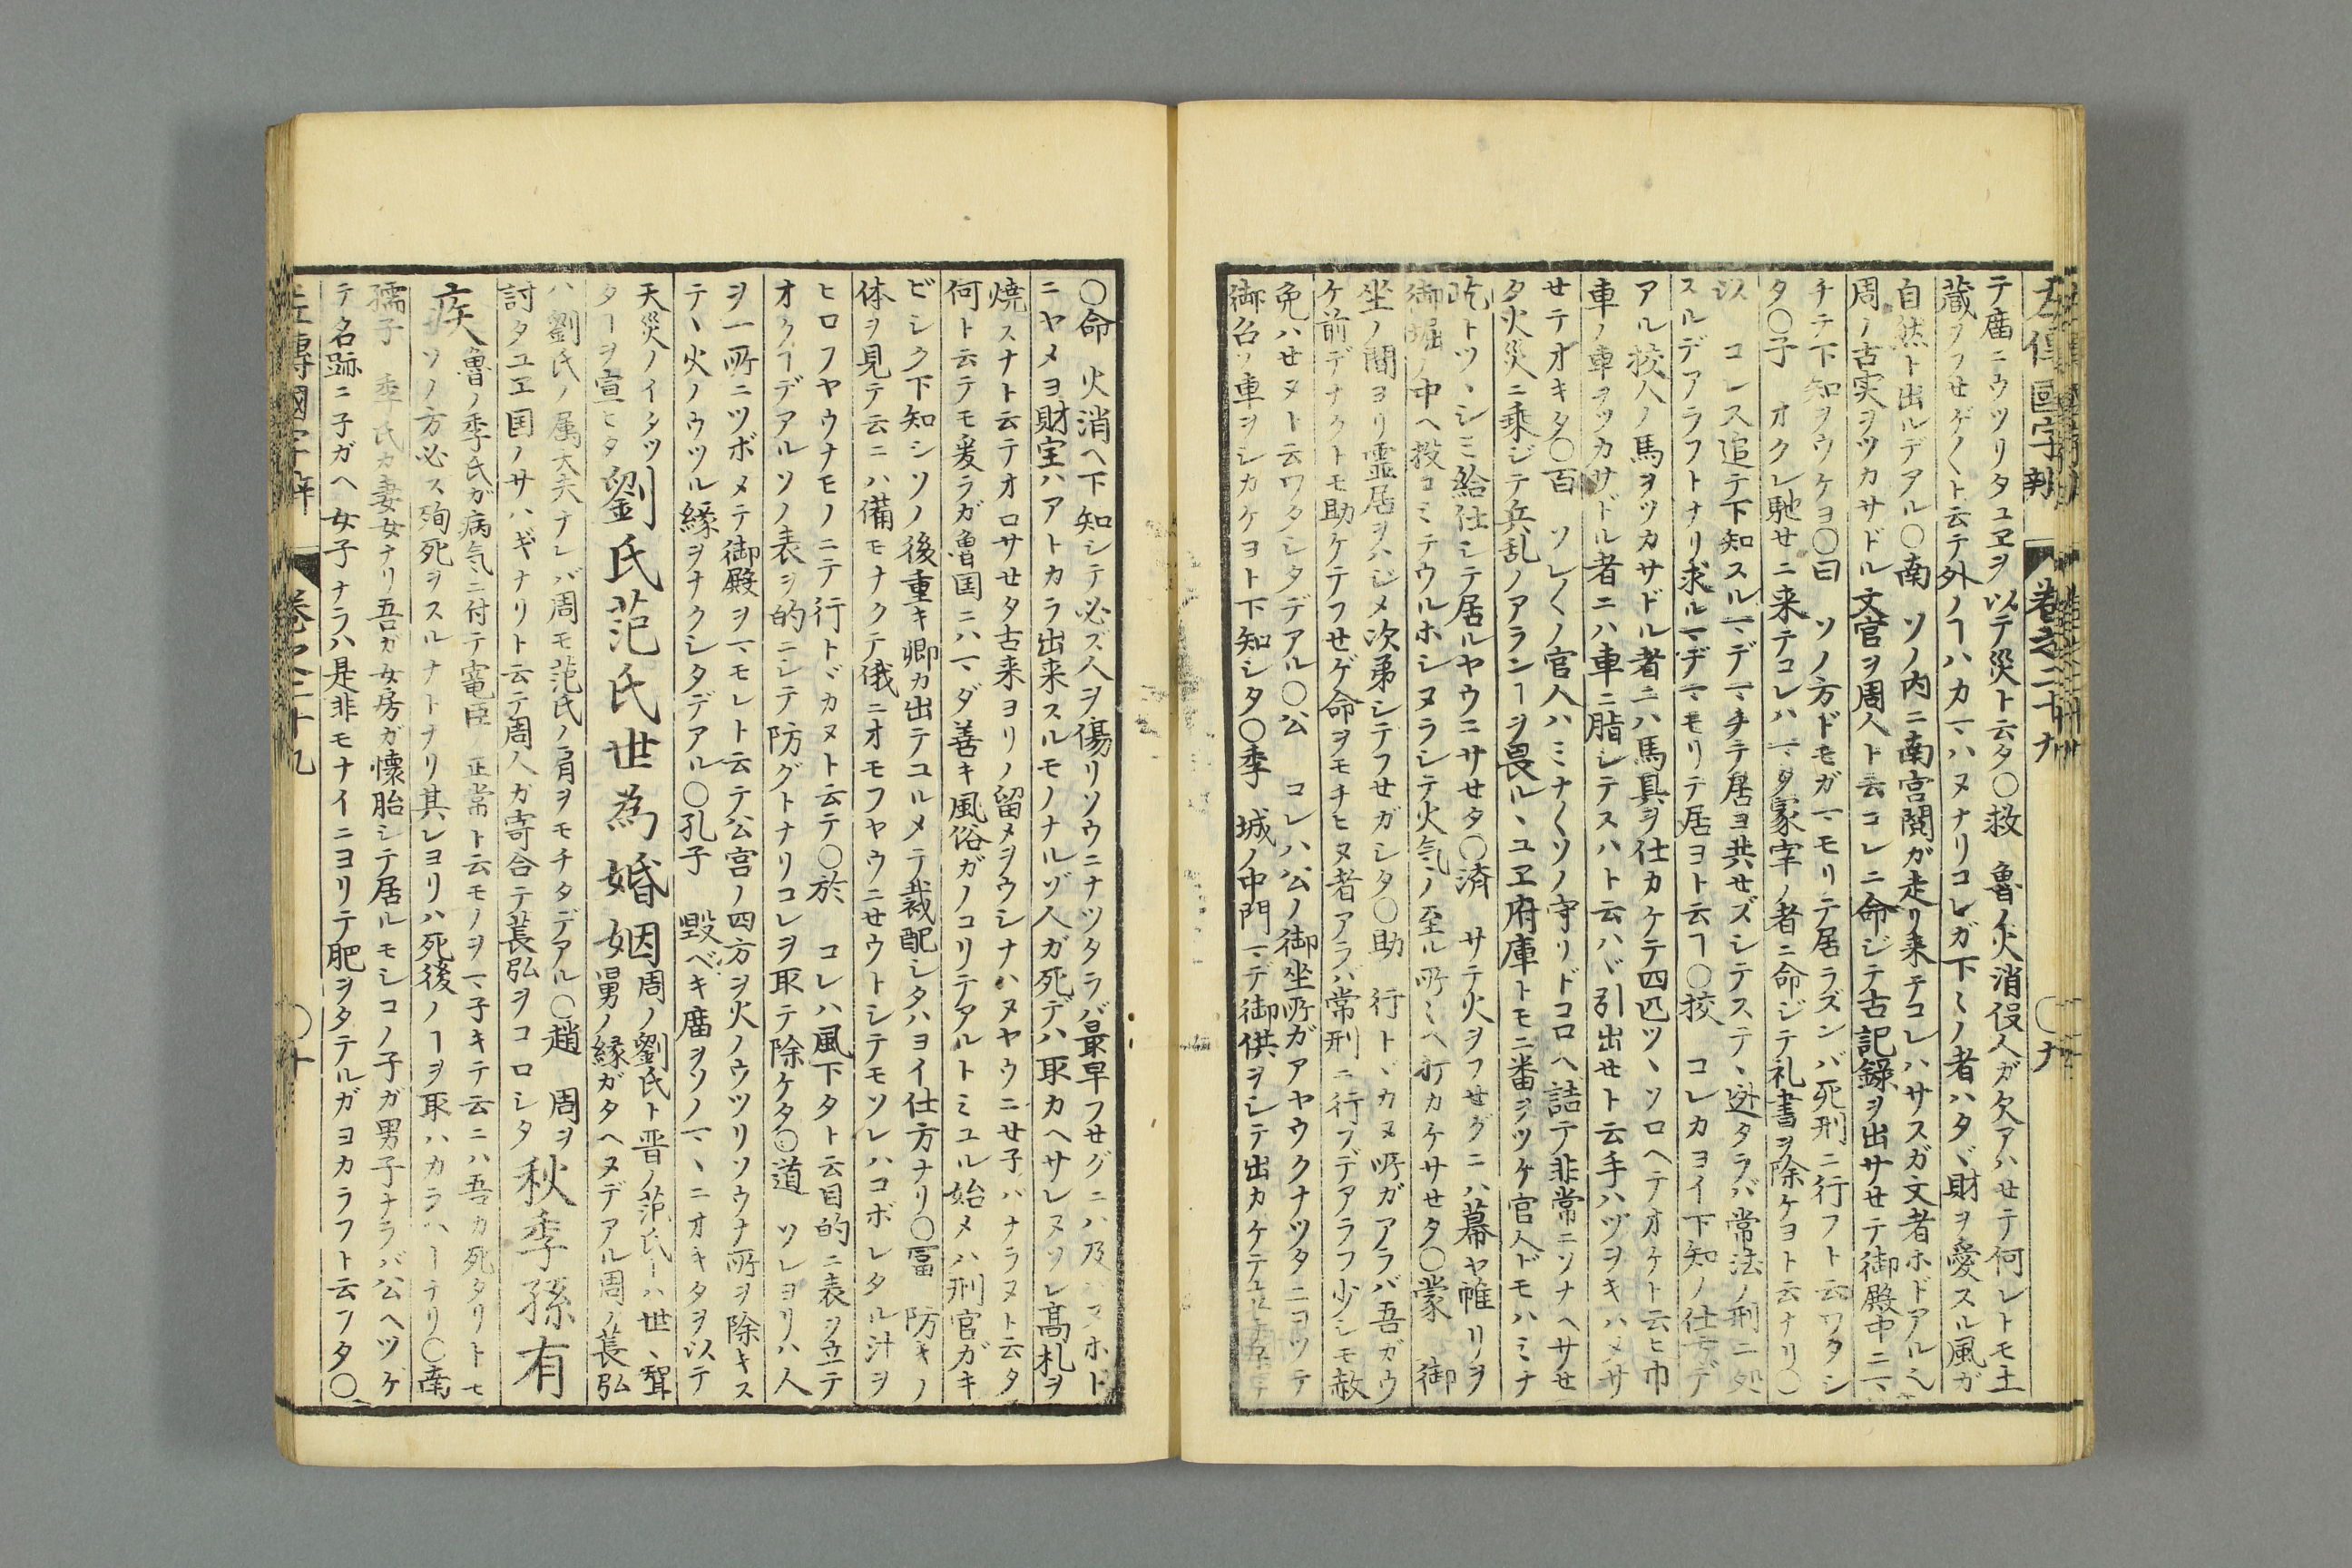 左傳國字辯 巻之二十九 〇九
テ庿ニウツリタユヱヲ以テ災ト云タ〇救 魯ノ火消役人ガ欠アハセテ何レトモ土
蔵ヲフセゲ〳〵ト云テ外ノヿハカマハヌナリコレガ下〻ノ者ハタヾ財ヲ愛スル風ガ
自然ト出ルデアル〇南 ソノ内ニ南宮閲ガ走リ来テコレハサスガ文者ホドアル
周ノ古実ヲツカサドル文官ヲ周人ト云コレニ命ジテ古記録ヲ出サセテ御殿中ニマ
チテ下知ヲウケヨ〇曰 ソノ方ドモガマモリテ居ラズンバ死刑ニ行フト云ワタシ
タ〇子 オクレ馳セニ来テコレハマタ冢宰ノ者ニ命ジテ礼書ヲ除ケヨト云ナリ〇
以 コレス追テ下知スルマデマチテ居ヨ共セズシテステヽ迯タラバ常法ノ刑ニ処
スルデアラフトナリ求ルマデマモリテ居ヨト云ヿ〇校 コレカヨイ下知ノ仕方デ
アル校人ノ馬ヲツカサドル者ニハ馬具ヲ仕カケテ四匹ツヽソロヘテオケト云ヒ巾
車ノ車ヲツカサドル者ニハ車ニ脂シテスハト云ハヾ引出セト云手ハヅヲキハメサ
セテオキタ〇百 ソレ〳〵ノ官人ハミナ〳〵ソノ守リドコロヘ詰テ非常ニソナヘサセ
タ火災ニ乗ジテ兵乱ノアランヿヲ畏ルヽユヱ府庫トモニ番ヲツケ官人ドモハミナ
吃トツヽシミ給仕シテ居ルヤウニサセタ〇済 サテ火ヲフセグニハ幕ヤ帷リヲ
御堀ノ中ヘ投コミテウルホシヌラシテ火気ノ至ル所〻ヘ打カケサセタ〇蒙 御
坐ノ間ヨリ霊居ヲハジメ次弟シテフセガシタ〇助 行トヾカヌ所ガアラバ吾ガウ
ケ前デナクトモ助ケテフセゲ命ヲモチヒヌ者アラバ常刑ニ行フデアラフ少シモ赦
免ハセヌト云ワタシタデアル〇公 コレハ公ノ御坐所ガアヤウクナツタニヨツテ
御召ノ車ヲシカケヨト下知シタ〇季 城ノ中門マデ御供ヲシテ出カケテ
〇命 火消ヘ下知シテ必ズ人ヲ傷リソウニナツタラバ最早フセグニハ及ハヌホド
ニヤメヨ財宝ハアトカラ出来スルモノナルゾ人ガ死デハ取カヘサレヌソレ高札ヲ
焼スナト云テオロサセタ古来ヨリノ留メヲウシナハヌヤウニセ子バナラヌト云タ
何ト云テモ爰ラガ魯国ニハマダ善キ風俗ガノコリテアルトミユル始メハ刑官ガキ
ビシク下知シソノ後重キ卿カ出テユルメテ裁配シタハヨイ仕方ナリ〇冨 防キノ
体ヲ見テ云ニハ備モナクテ俄ニオモフヤウニセウトシテモソレハコボレタル汁ヲ
ヒロフヤウナモノニテ行トヾカヌト云テ〇於 コレハ風下タト云目的ニ表ヲ立テ
オクヿデアルソノ表ヲ的ニシテ防グトナリコレヲ取テ除ケタ〇道 ソレヨリハ人
ヲ一所ニツボメテ御殿ヲマモレト云テ公宮ノ四方ヲ火ノウツリソウナ所ヲ除キス
テヽ火ノウツル縁ヲナクシタデアル〇孔子 毀ベキ庿ヲソノマヽニオキタヲ以テ
天災ノイタツタヿヲ宣ヒタ劉氏范氏世為婚姻周ノ劉氏ト晋ノ范氏ヿハ世〻聟舅ノ縁ガタヘヌデアル周ノ萇弘
ハ劉氏ノ属大夫ナレバ周モ范氏ノ肩ヲモチタデアル〇趙 周ヲ
討タユヱ国ノサハギナリト云テ周人ガ寄合テ萇弘ヲコロシタ秋季孫有
疾魯ノ季氏ガ病気ニ付テ寵臣ノ正常ト云モノヲマ子キテ云ニハ吾カ死タリトモ
ソノ方必ス殉死ヲスルナトナリ其レヨリハ死後ノヿヲ取ハカラヘーテリ〇南
孺子 季氏カ妻女ナリ吾ガ女房ガ懐胎シテ居ルモシコノ子ガ男子ナラバ公ヘツゲ
テ名跡ニ子ガヘ女子ナラハ是非モナイニヨリテ肥ヲタテルガヨカラフト云フタ〇
左傳國字辯 巻之二十九 〇十